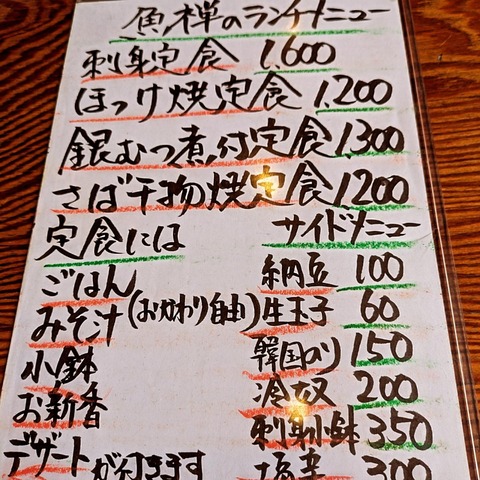 魚禅のランチメニュー
刺身定食 1,600
ほっけ焼定食 1,200
銀むつ煮付定食 1,300
さば干物焼定食 1,200
定食には
ごはん
みそ汁(おかわり自由)
小鉢
お新香
デザートが付きます
サイドメニュー
納豆 100
生玉子 60
韓国のり 150
冷奴 200
刺身小鉢 350
300